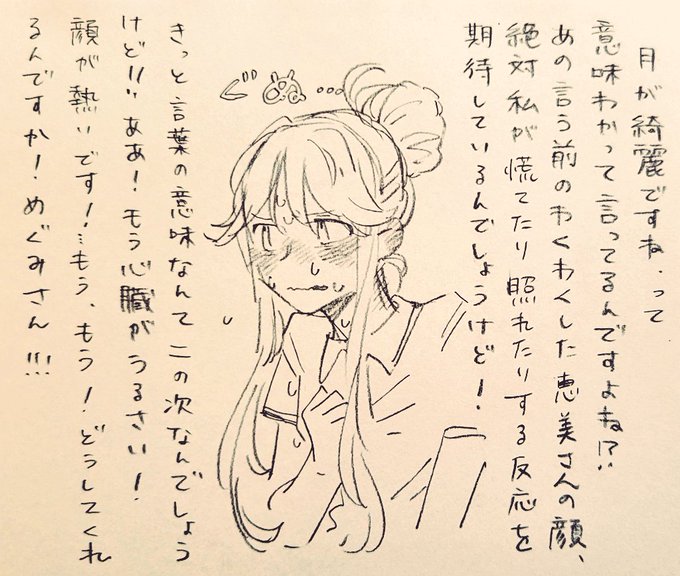 月が綺麗ですね.って
意味わかって言ってるんですよね!?
あの言う前のわくわくした恵美さんの顔、
絶対私が慌てたり照れたりする反応を
期待しているんでしょうけど!
ぐぬぬ…
きっと言葉の意味なんて二の次なんでしょう
けど!!ああ!もう心臓がうるさい!
顔が熱いです!…もう、もう!どうしてくれ
るんですか!めぐみさん!!!